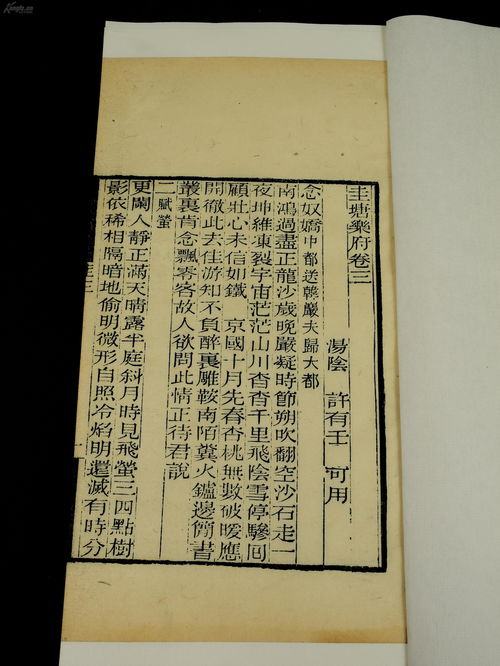 圭塘樂府卷三
湯陰 許有王 可用
念奴嬌中都送韓嚴夫歸大都
南鴻過盡正龍沙歲晚嚴凝時節朔吹翻空沙石走一
夜坤維凍裂宇宙茫茫山川杳杳千里飛陰雪停驂回
顧壯心未信如鐵 京國十月先春杏桃無數破暖應
開徹此去佳游知不負醉裏雕鞍南陌糞火鑪邊簡書
叢裏肯念飄零客故人欲問此情正待君說
二賦螢
更闌人靜正滿天晴露半庭斜月時見飛螢三四點樹
影依稀相隔暗地偷明微形自照冷焰明還滅有時分